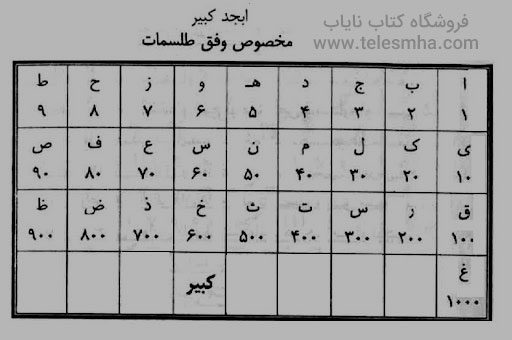 ابجد کبیر
مخصوص وفق طلسمات
فروشگاه کتاب نایاب
www.telesmha.com
ا ب ج د هـ و ز ح ط
۱ ۲ ۳ ۴ ۵ ۶ ۷ ۸ ۹
ی ک ل م ن س ع ف ص
۱۰ ۲۰ ۳۰ ۴۰ ۵۰ ۶۰ ۷۰ ۸۰ ۹۰
ق ر س ت ث خ ذ ض ظ
۱۰۰ ۲۰۰ ۳۰۰ ۴۰۰ ۵۰۰ ۶۰۰ ۷۰۰ ۸۰۰ ۹۰۰
غ کبیر
۱۰۰۰